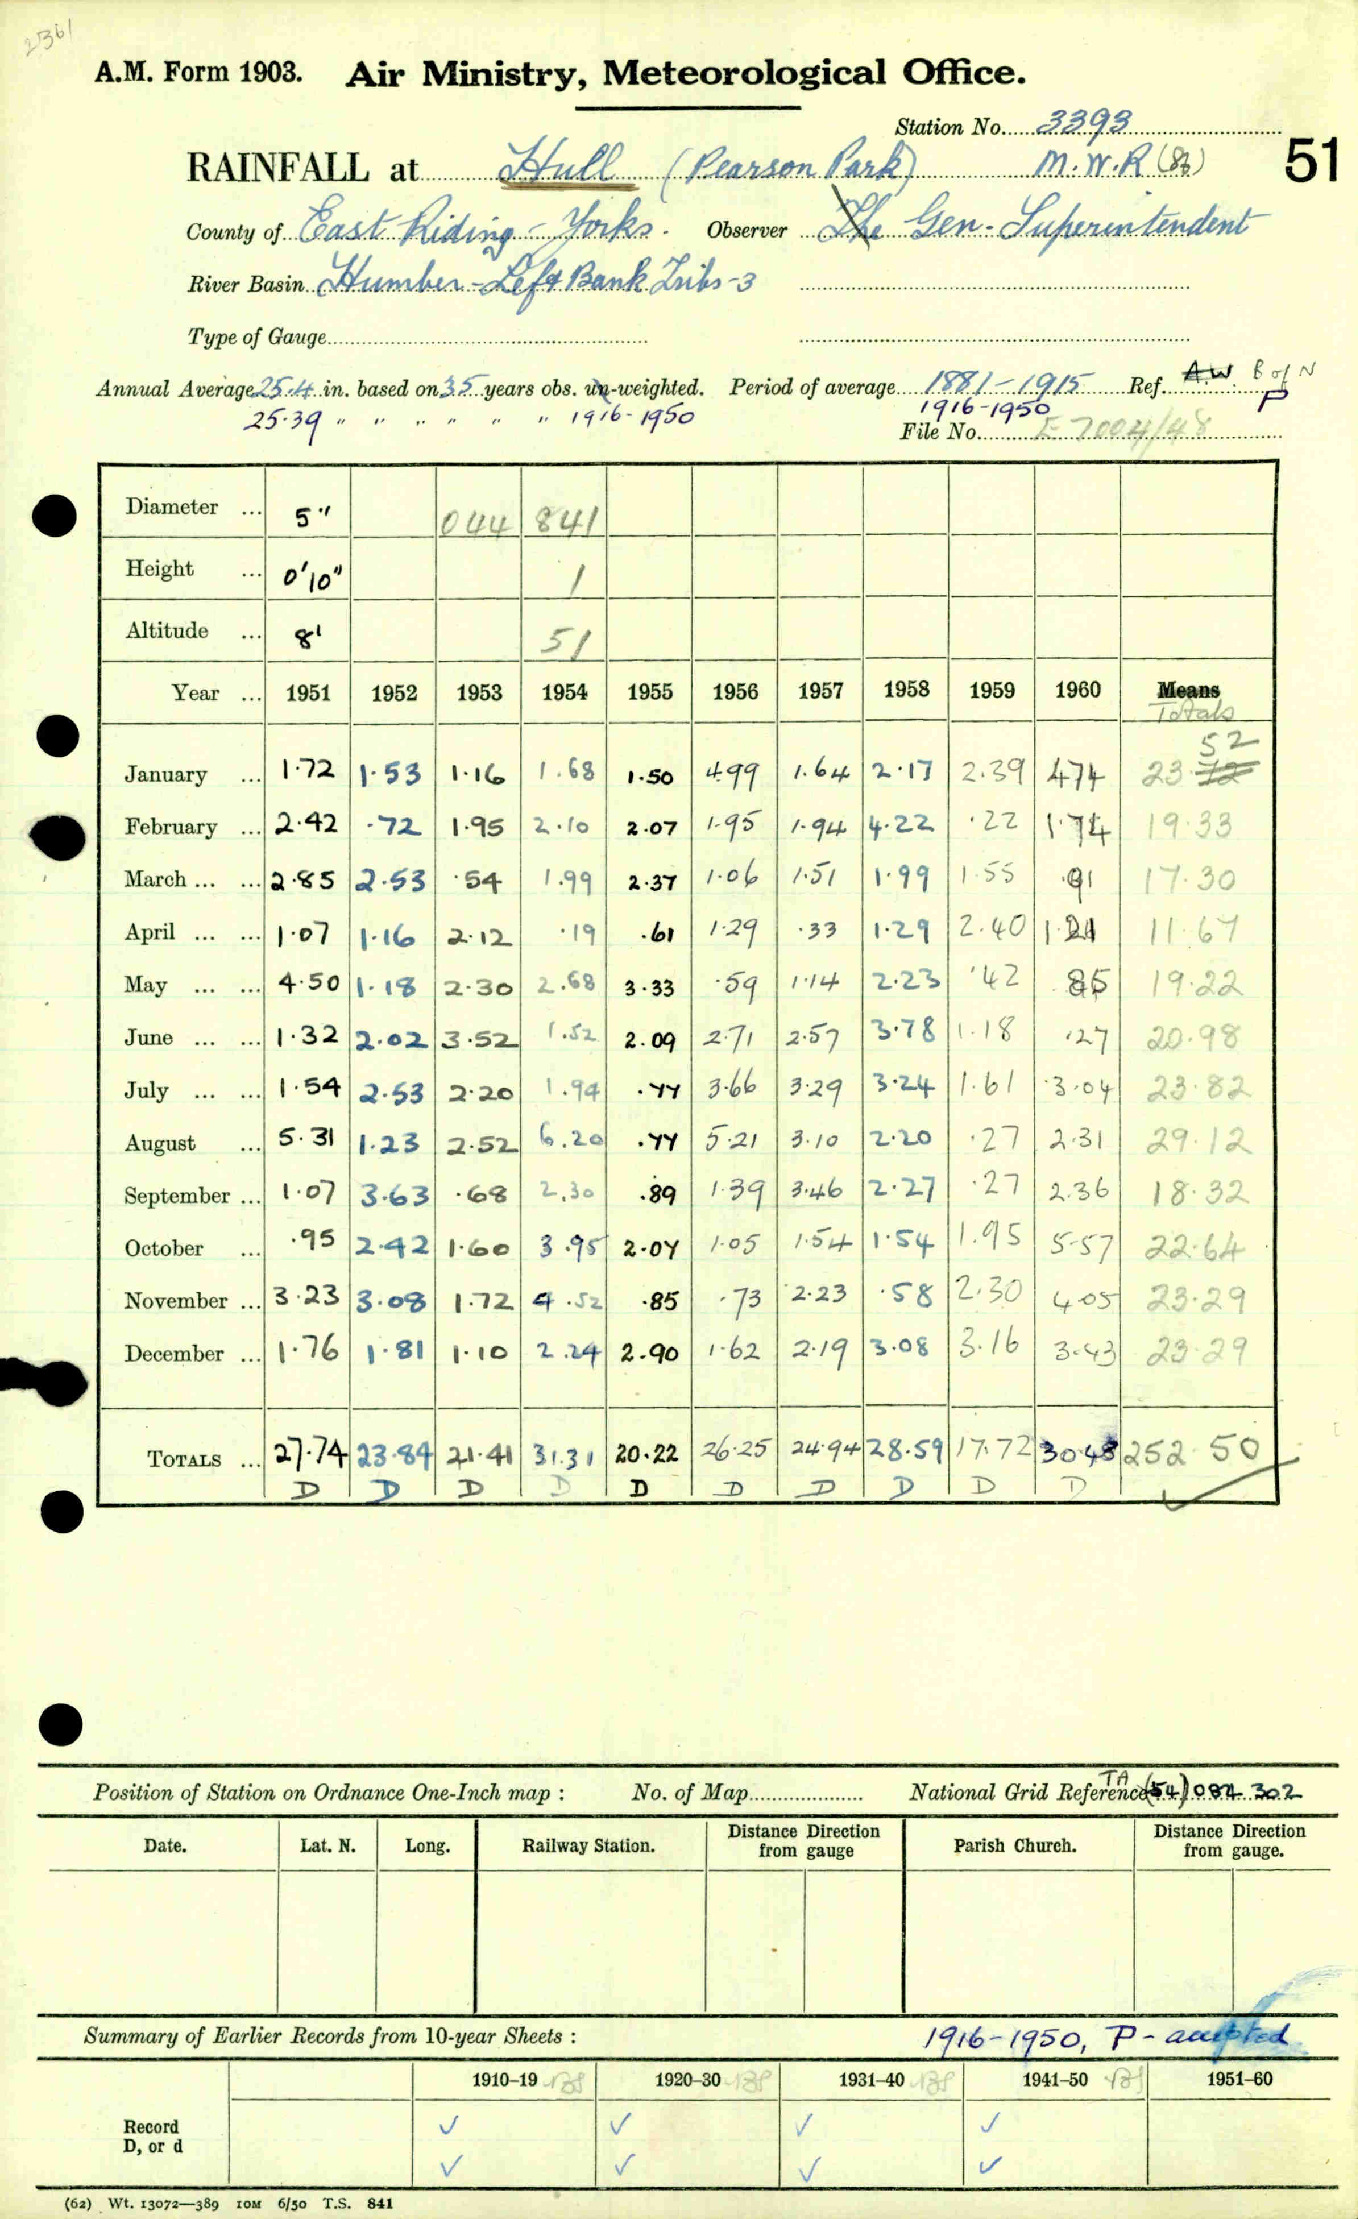 2361
A.M. Form 1903. Air Ministry, Meteorological Office.
Station No. 3393
RAINFALL at Hull (Pearson Park) M.W.R (86)
51
County of East Riding - Yorks. Observer The Gen-Superintendent
River Basin Humber - Left Bank Tribs-3
Type of Gauge
Annual Average 25.4 in. based on 35 years obs. un-weighted. Period of average 1881-1915 Ref. A.W. B of N
25.39 " " " " " " 1916-1950 1916-1950 P
File No. E 7004/48
Diameter ... 5" 044 841
Height ... 0'10" 1
Altitude ... 8' 51
Year ... 1951 1952 1953 1954 1955 1956 1957 1958 1959 1960 Means
Totals
52
January ... 1.72 1.53 1.16 1.68 1.50 4.99 1.64 2.17 2.39 4.74 23.12
February ... 2.42 .72 1.95 2.10 2.07 1.95 1.94 4.22 .22 1.74 19.33
March ... ... 2.85 2.53 .54 1.99 2.37 1.06 1.51 1.99 1.55 .91 17.30
April ... ... 1.07 1.16 2.12 .19 .61 1.29 .33 1.29 2.40 1.21 11.67
May ... ... 4.50 1.18 2.30 2.68 3.33 .59 1.14 2.23 .42 85 19.22
June ... ... 1.32 2.02 3.52 1.52 2.09 2.71 2.57 3.78 1.18 .27 20.98
July ... ... 1.54 2.53 2.20 1.94 .77 3.66 3.29 3.24 1.61 3.04 23.82
August ... 5.31 1.23 2.52 6.20 .77 5.21 3.10 2.20 .27 2.31 29.12
September ... 1.07 3.63 .68 2.30 .89 1.39 3.46 2.27 .27 2.36 18.32
October ... .95 2.42 1.60 3.95 2.07 1.05 1.54 1.54 1.95 5.57 22.64
November ... 3.23 3.08 1.72 4.52 .85 .73 2.23 .58 2.30 4.05 23.29
December ... 1.76 1.81 1.10 2.24 2.90 1.62 2.19 3.08 3.16 3.43 23.29
TOTALS ... 27.74 23.84 21.41 31.31 20.22 26.25 24.94 28.59 17.72 30.48 252.50
D D D D D D D D D D
Position of Station on Ordnance One-Inch map : No. of Map National Grid Reference TA (54) 084 302
Date. Lat. N. Long. Railway Station. Distance from Direction gauge Parish Church. Distance from Direction gauge.
Summary of Earlier Records from 10-year Sheets : 1916-1950, P - accepted
1910-19 1920-30 1931-40 1941-50 1951-60
Record ✓ ✓ ✓ ✓
D, or d ✓ ✓ ✓ ✓
(62) Wt. 13072—389 10M 6/50 T.S. 841